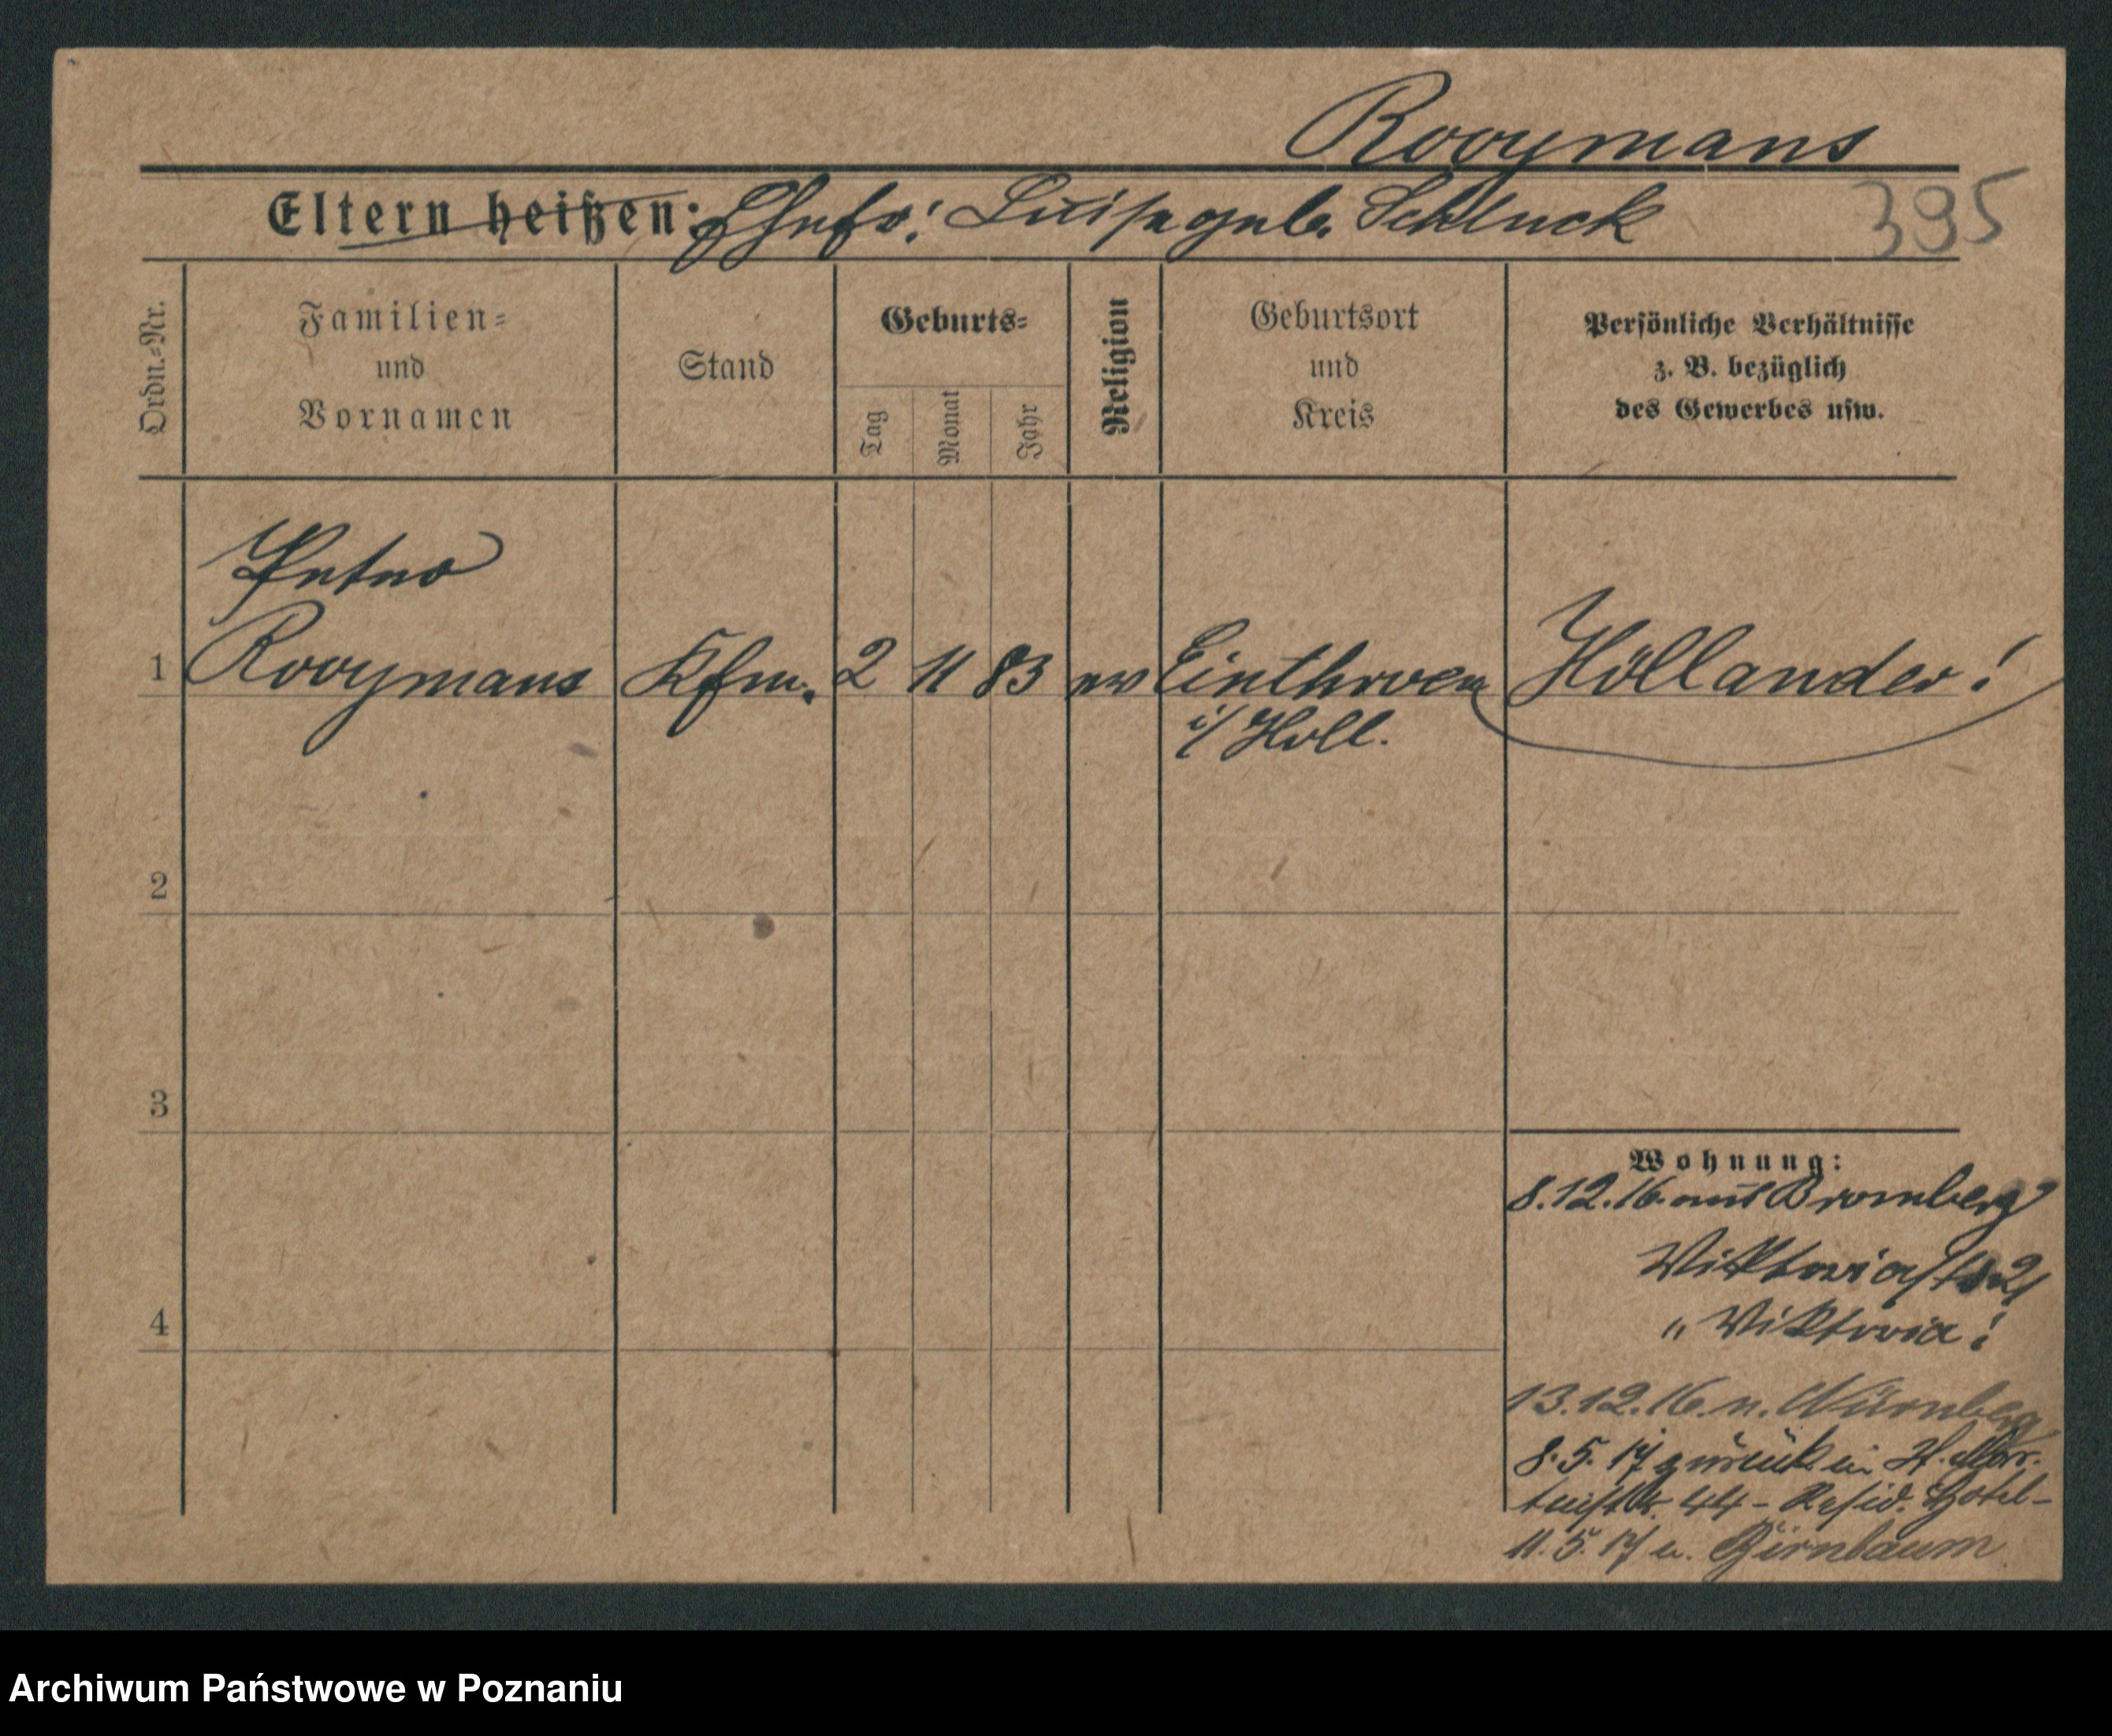 Rooymans
Eltern heißen: Ehefr: Luise geb. Schluck
395
Ordn.-Nr.
Familien-
und
Vornamen
Stand
Geburts-
Tag
Monat
Jahr
Religion
Geburtsort
und
Kreis
Persönliche Verhältnisse
z. B. bezüglich
des Gewerbes usw.
Peter
1 Rooymans Kfm. 2 11 83 ev Einthoven Holländer!
i/Holl.
2
3
4
Wohnung:
8.12.16. aus Bromberg
Viktoriastr 21
" Viktoria!
13.12.16. n. Nürnberg
8.5.17 zurück in
44 - Resid. Hotel -
11.5.17 n. Birnbaum
Archiwum Państwowe w Poznaniu